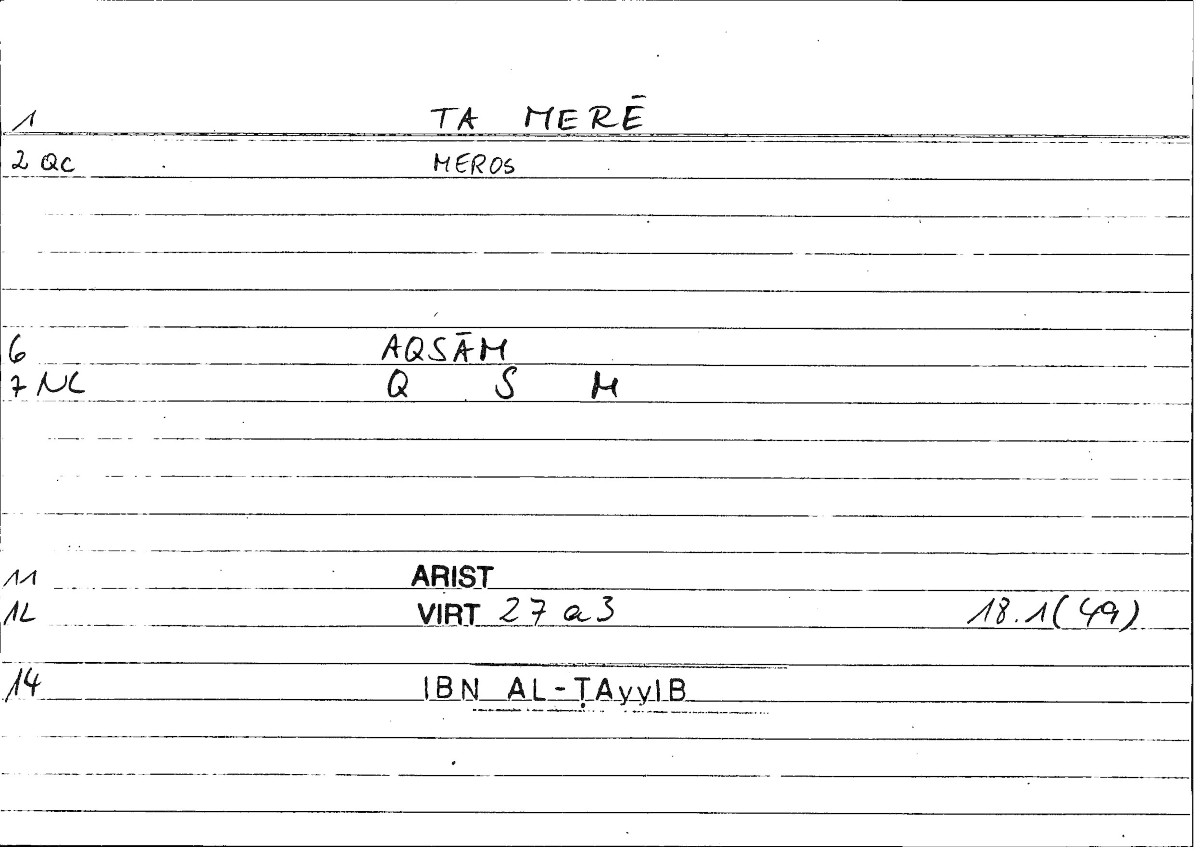 1 TA MERĒ
2 QC MEROS
6 AQSĀM
7 NC Q S M
11 ARIST
12 VIRT 27 a3 18.1(49)
14 IBN AL-ṬAyyIB